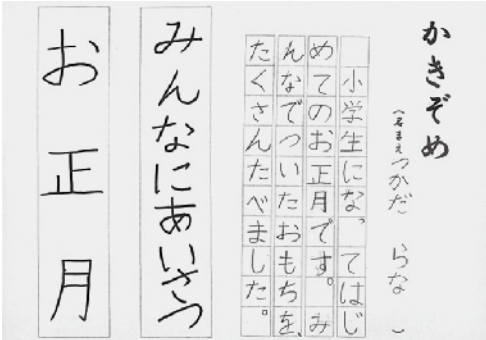 かきぞめ
（名まえ つかだ らな ）
　小学生になってはじ
めてのお正月です。み
んなでついたおもちを、
たくさんたべました。
みんなにあいさつ
お正月